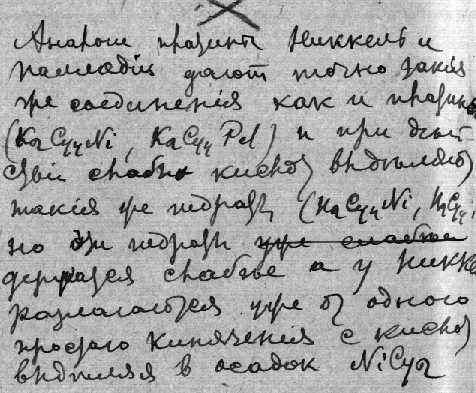 никкель и
палладiй дают точно такiя
же соединенiя как и
(KaCy4Ni, KaCy4 Pd) и при
слабых кислот выделяют
такiя же гидраты (H2Cy4Ni, H2Cy4
но эти гидраты уже слабые
держатся слабые а у никк
разлагаются уже от одного
простого кипяченiя с кислот
выделяя в осадок NiCy2